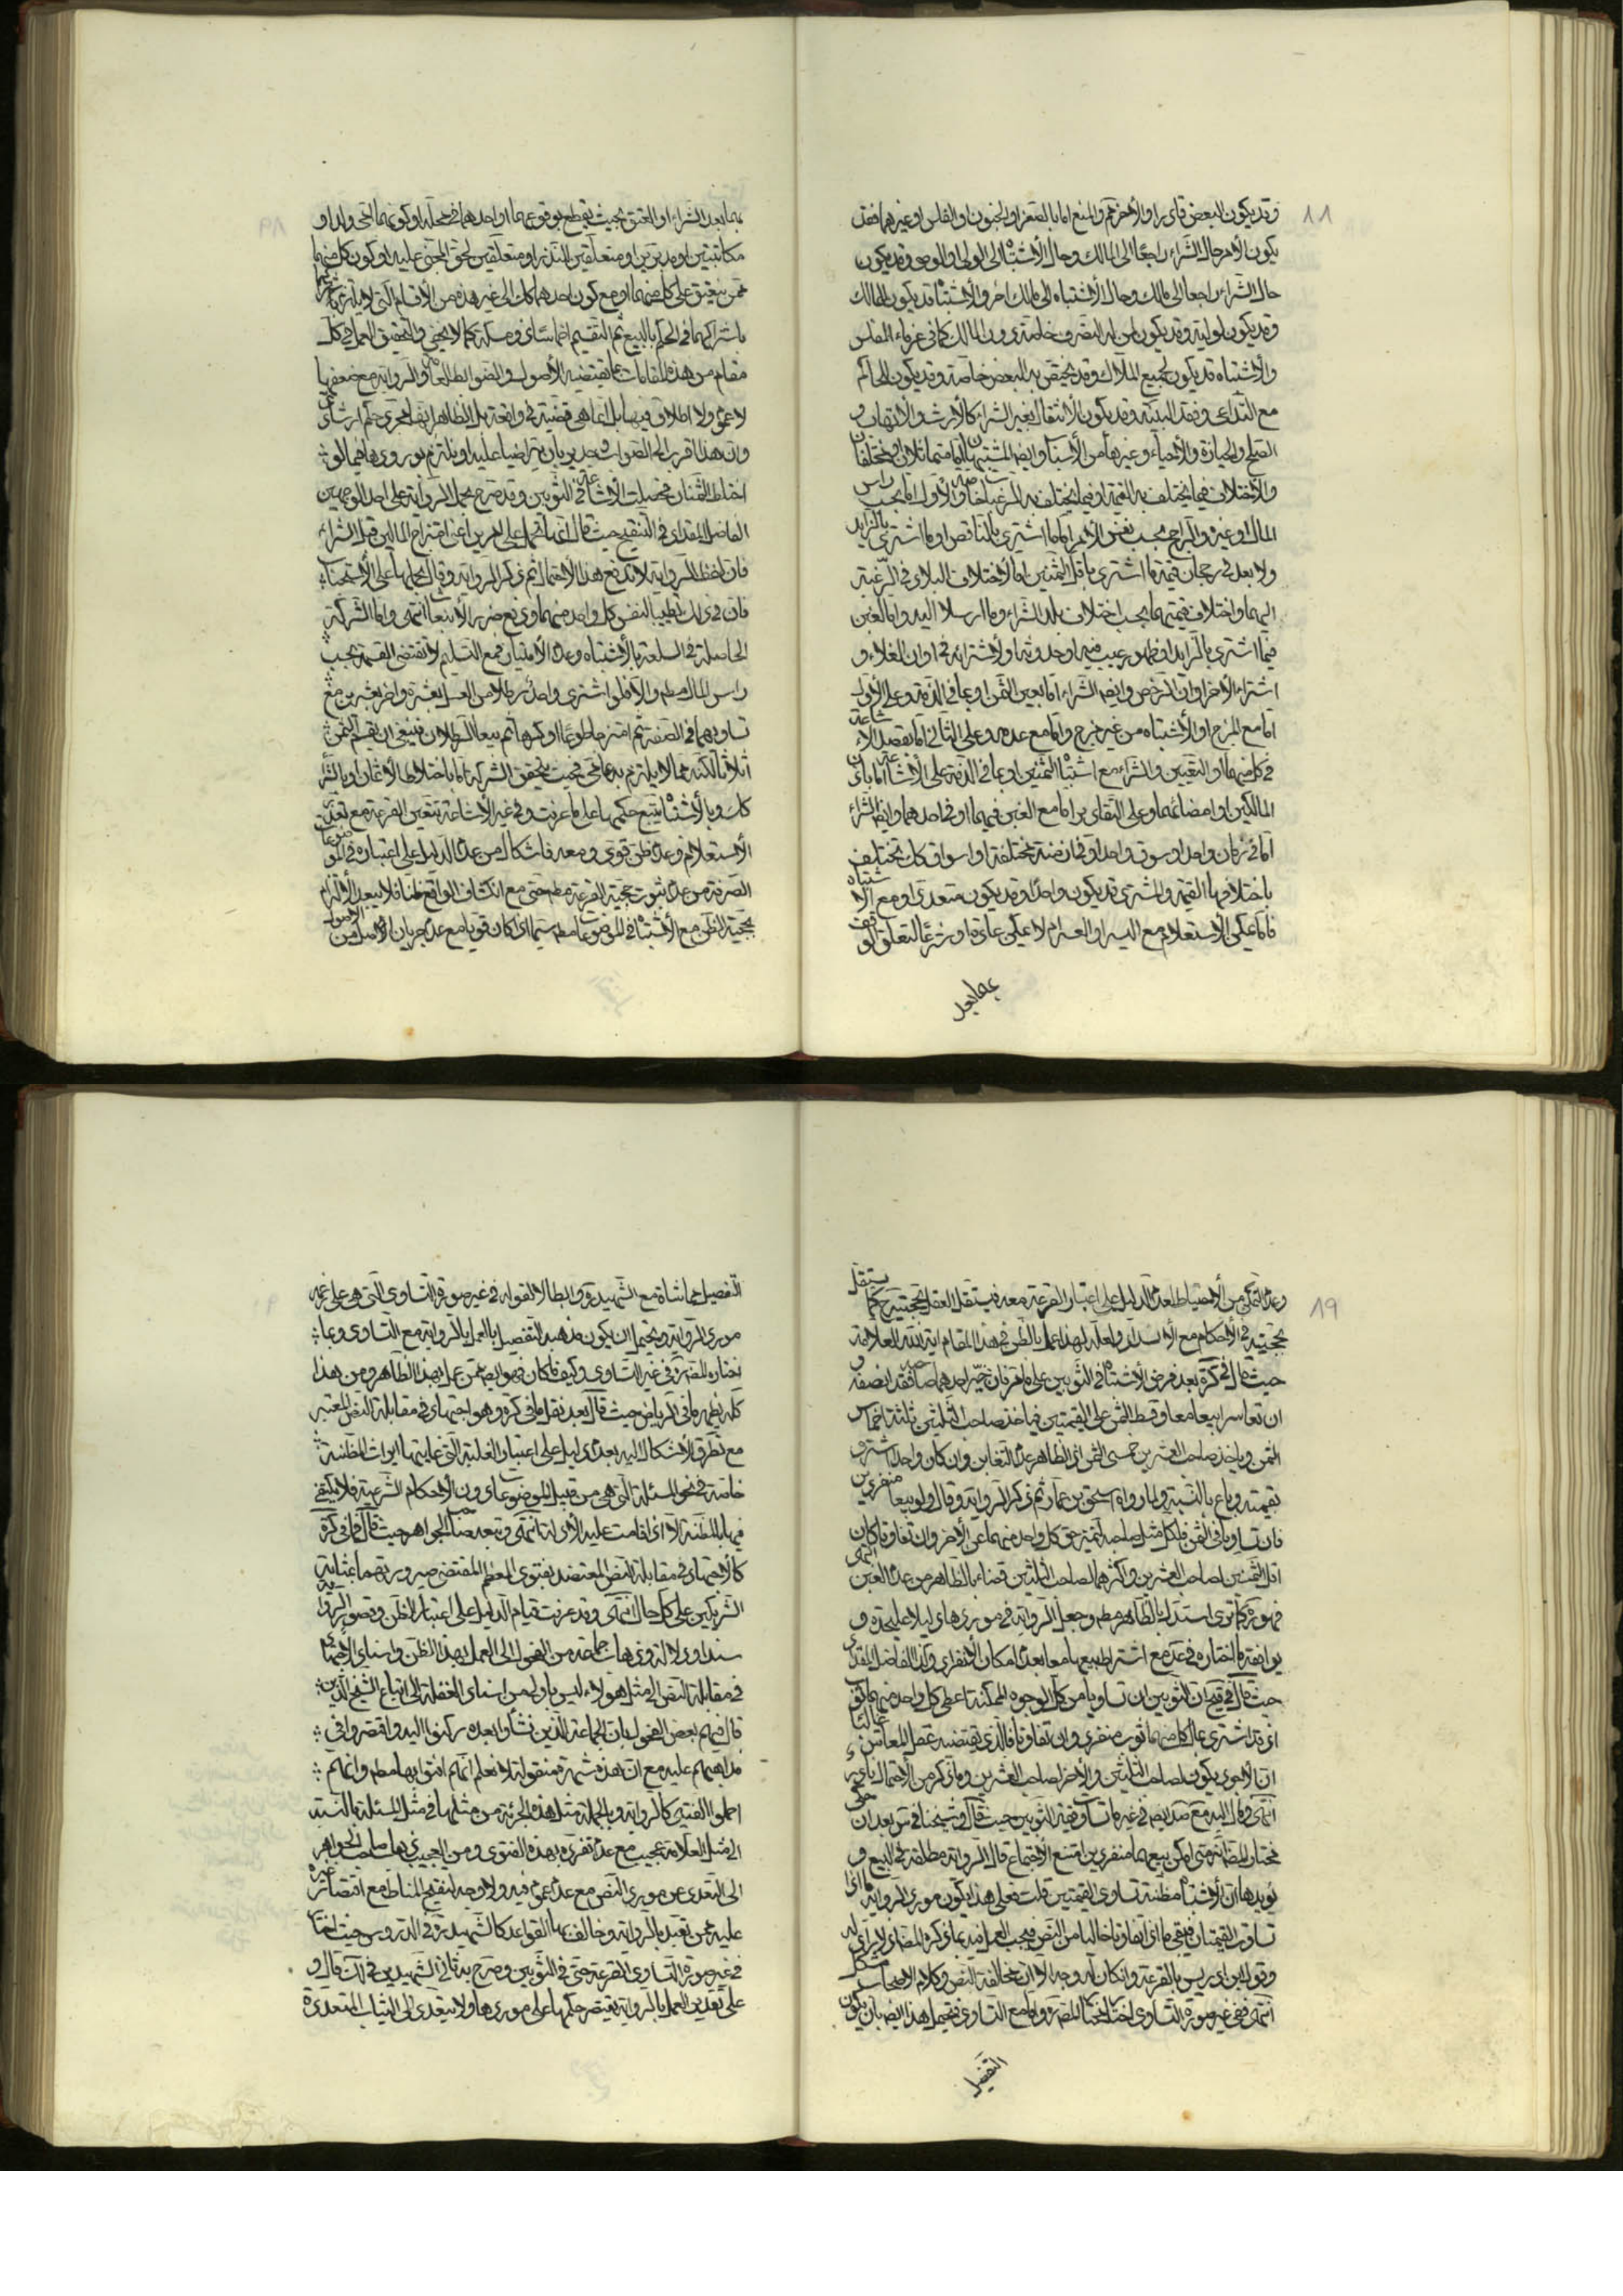 ٨٨
وقد يكون البعض قادرا والاخر هم والمنع اما بالصغر او الجنون او الفلس او غيرهما فقد
يكون الأمر حال الشراء راجعا الى المالك وحال الأشتباه الى الولي او الوصي وقد يكون
حال الشراء راجعا الى مالك وحال الأشتباه الى مالك اخر والأشتباه قد يكون للمالك
وقد يكون لوليه وقد يكون لمن له التصرف خاصة دون المالك كما في غرماء المفلس
والأشتباه قد يكون لجميع الملاك وقد يختص به البعض خاصة وقد يكون للحاكم
مع التداعي وفقد البينة وقد يكون الأنتقال بغير الشراء كالأرث والأتهاب و
الصلح والحيازة والأحياء وغيرها من الأسباب وايضا المشتبهان اما متماثلان او مختلفان
والأختلاف فيما يختلف به القيمة او فيما يختلف به الرغبات خاصة وعلى الأول اما بحسب راس
المال او غيره والراجح بحسب نفس الأمر اما ما اشترى بالناقص او ما اشترى بالزايد
ولا بعد في رجحان قيمة ما اشترى باقل الثمنين اما لأختلاف البلاد في الرغبة
اليهما واختلاف قيمتهما بحسب اختلاف بلد الشراء وما ارسلا اليه واما لغبن
فيما اشترى بالزايد او ظهور عيب فيه او حدوثه او لأشترائه في اوان الغلاء و
اشتراء الأخر اوان الرخص وايضا الشراء اما بعين الثمن او بما في الذمة وعلى الأول
اما مع المزج او الأشتباه من غير مزج واما مع عدمه وعلى الثاني اما بقصد الأشاعة
في كل منهما او التعيين والشراء مع اشتباه الثمنين او بما في الذمة على الأشاعة اما باذن
المالكين او امضائهما وعلى التقادير اما مع الغبن فيهما او في احدهما وايضا الشراء
اما في زمان واحد او سوق واحد او في ازمنة مختلفة او اسواق كك تختلف
باختلافها القيمة والمشترى قد يكون واحدا وقد يكون متعددا ومع الأشتباه
فاما يمكن الأستعلام مع اليسر او العسر ام لا يمكن عادة او شرعا لتعلق الوقف
بهما بعد
بهما بعد الشراء او العتق بحيث يقطع بوقوعهما او احدهما في محله او كونهما امتي ولد او
مكاتبتين او مدبرين او متعلقين للنذر او متعلقين لحق المجنى عليه او كون كل منهما
ممن ينعتق على كل منهما او مع كون احدهما كك الى غير هذه من الأقسام التي لا يلتزم
باشتراكهما في الحكم بالبيع ثم التقسيم اخماسا ذو مسكة كما لا يخفى والتحقيق العمل في كل
مقام من هذه المقامات بما يقتضيه الأصول والضوابط العامة والرواية مع ضعفها
لا عموم ولا اطلاق فيها بل انما هي قضية في واقعة بل الظاهر انها مجرى حكم ارشادي
وان هذا اقرب الى الصواب وجدير بان يتراضيا عليه او يلتزم بورودها فيما لو
اختلط الثمنان فحصلت الأشاعة في الثوبين وقد صرح بحمل الرواية على احد الوجهين
الفاضل المقداد في التنقيح حيث قال انما تحمل على امرين اعنى امتزاج المالين قبل الشراء
فان لفظ الرواية لا تدفع هذا الأحتمال ثم ذكر الرواية وقال بحملها على الأستحباب
فان في ذلك تطييبا لنفس كل واحد منهما ودفع ضرر الأبتياع انتهى واما الشركة
الحاصلة في السلعة بالأشتباه وعدم الأمتياز فمع التسليم لا تقتضى القسمة بحسب
راس المال مطم والا فلو اشترى واحد رطلا من العسل بعشرة واخر بعشرين مع
تساويهما في الصفة ثم امتزجا طوعا او كرها ثم بيعا الرطلان فينبغى ان يقسم الثمن
اثلاثا لكنه مما لا يلتزم به عامي فحيث يتحقق الشركة اما باختلاط الأثمان او بالشراء
كك وبالأشتباه يتبع حكمها على ما عرفت وفي غير الأشاعة يتعين القرعة مع تعذر
الأستعلام وعدم ظن قوى ومعه فاشكال من عدم الدليل على اعتباره في الموضوعات
الصرفة ومن عدم ثبوت حجية القرعة مطم حتى مع انكشاف الواقع ظنا فلا يبعد الألتزام
بحجية الظن مع الأشتباه في الموضوعات مطم سيما اذا كان قويا مع عدم جريان الأصول من
٨٩
وعدم التمكن من الأحتياط لعدم الدليل على اعتبار القرعة معه فيستقل العقل بحجيته ح كما يستقل
بحجيته في الأحكام مع الأنسداد ولعله لهذا عمل بالظن في هذا المقام اية الله العلامة
حيث قال في كره بعد فرض الأشتباه في الثوبين على ما مر فان خير احدهما صاحبه فقد انصفه و
ان تعاسرا بيعا معا وقسط الثمن على القيمتين فياخذ صاحب الثلثين ثلثة اخماس
الثمن وياخذ صاحب العشرين خمسى الثمن اذ الظاهر عدم التغابن وان كان واحد اشترى
بقيمته وباع بالنسبة ولما رواه اسحق بن عمار ثم ذكر الرواية وقال ولو بيعا منفردين
فان تساويا في الثمن فلكل مثل صاحبه لتميز حق كل واحد منهما عن الأخر وان تفاوتا كان
اقل الثمنين لصاحب العشرين واكثرهما لصاحب الثلثين قضاء بالظاهر من عدم الغبن انتهى
فهو ره كما ترى استدل بالظاهر مطم وجعل الرواية في موردها دليلا عليحده و
يوافقه ما اختاره في عد مع اشتراط بيعهما معا بعدم امكان الأنفراد وكذا الفاضل المقداد
حيث قال في قد ان الثوبين ان تساويا من كل الوجوه الممكنة اعطى كل واحد منهما ثوب
اذ قد اشترى بمال كل منهما ثوب منفرد وان تفاوتا فالذي يقتضيه عقل المعاش غالبا
ان الأجود يكون لصاحب الثلثين والأخر لصاحب العشرين وما ذكر من الأحتمال نادر
انتهى ومال اليه مع ضد ايضا في غير ما تساوى قيمة الثوبين حيث قال وشيخنا في س بعد ان حكى
مختار المصنف انه متى امكن بيعهما منفردين امتنع الأجتماع قال الرواية مطلقة في البيع و
يؤيدها ان الأشتباه مظنة تساوى القيمتين قلت فعلى هذا يكون مورد الرواية ما اذا
تساوت القيمتان فيبقى ما اذا تفاوتا خاليا من النص فيجب العمل فيه بما ذكره المصنف اذ لا راد له
وقول ابن ادريس بالقرعة وان كان له وجه الا ان مخالفة النص وكلام الأصحاب مشكل
انتهى ففي غير صورة التساوى اختار مختار المصنف ره واما مع التساوى فيحتمل هذا ايضا بان يكون
التفصيل
التفصيل مماشاة مع الشهيد ره وابطالا لقوله في غير صورة التساوى التي هي على زعمه
مورد الرواية ويحتمل ان يكون مذهبه التفصيل بالعمل بالرواية مع التساوى وبما
اختاره المصنف ره في غير التساوى وكيف ما كان فهو ايضا ممن عمل بهذا الظاهر ومن هذا
كله يظهر ما في الرياض حيث قال بعد نقل ما في كره وهو اجتهاد في مقابلة النص المعتبر
مع تطرق الأشكال اليه بعدم دليل على اعتبار الغلبة التي غايتها ايراث المظنة
خاصة في نحو المسئلة التي هي من قبيل الموضوعات دون الأحكام الشرعية فلا يكتفى
فيها بالمظنة الا اذا قامت عليه الأدلة انتهى وتبعه صاحب الجواهر حيث قال فما في كره
كالأجتهاد في مقابلة النص المعتضد بفتوى المعظم المقتضى صيرورتهما بمثابة
الشريكين على كل حال انتهى وقد عرفت قيام الدليل على اعتبار الظن وقصور الرواية
سندا ودلالة وذهاب جماعة من الفحول الى العمل بهذا الظن واسناد الأجتهاد
في مقابلة النص الى مثل هؤلاء ليس باولى من اسناد الغفلة الى اتباع الشيخ الذين
قال فيهم بعض الفحول بان الجماعة الذين نشأوا بعده ركنوا اليه واقتصروا في
مذاهبهم عليه مع ان هذه شهرة منقولة لا نعلم انهم افتوا بها مطم وانهم
اجملوا الفتوى كالرواية وبالجملة مثل هذه الجرئة من مثلهما في مثل المسئلة بالنسبة
الى مثل العلامة عجيب مع عدم تفرده بهذه الفتوى ومن العجيب ذهاب صاحب الجواهر
الى التعدى عن مورد النص مع عدم عموم فيه ولا وجه لتنقيح المناط مع اقتصار غيره
عليه ممن تعبد بالرواية وخالف بها القواعد كالشهيد ره في الدروس حيث اختار
في غير صورة التساوى القرعة حتى في الثوبين وصرح به ثاني الشهيدين في لك قال و
على تقدير العمل بالرواية يقتصر حكمها على موردها ولا يتعدى الى الثياب المتعددة